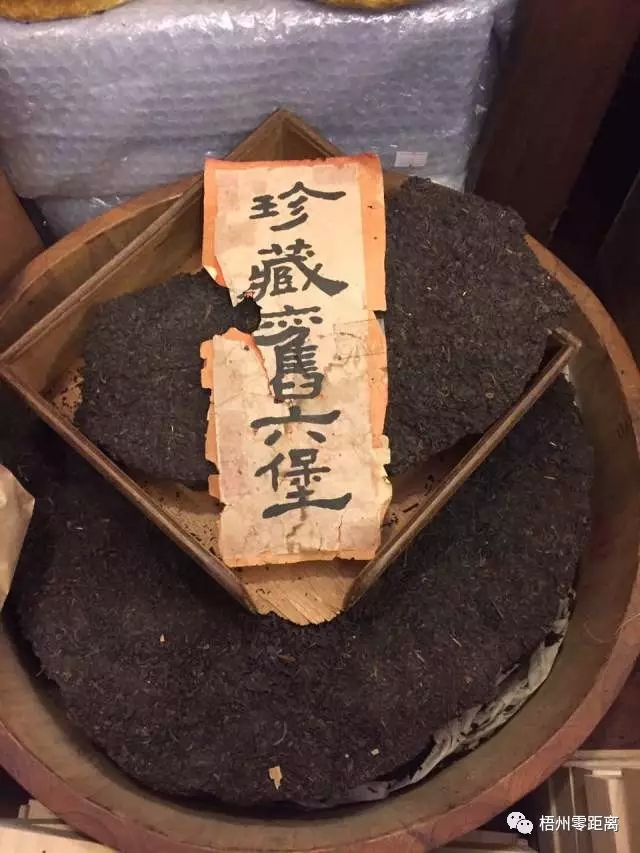 珍藏舊六堡
梧州零距离